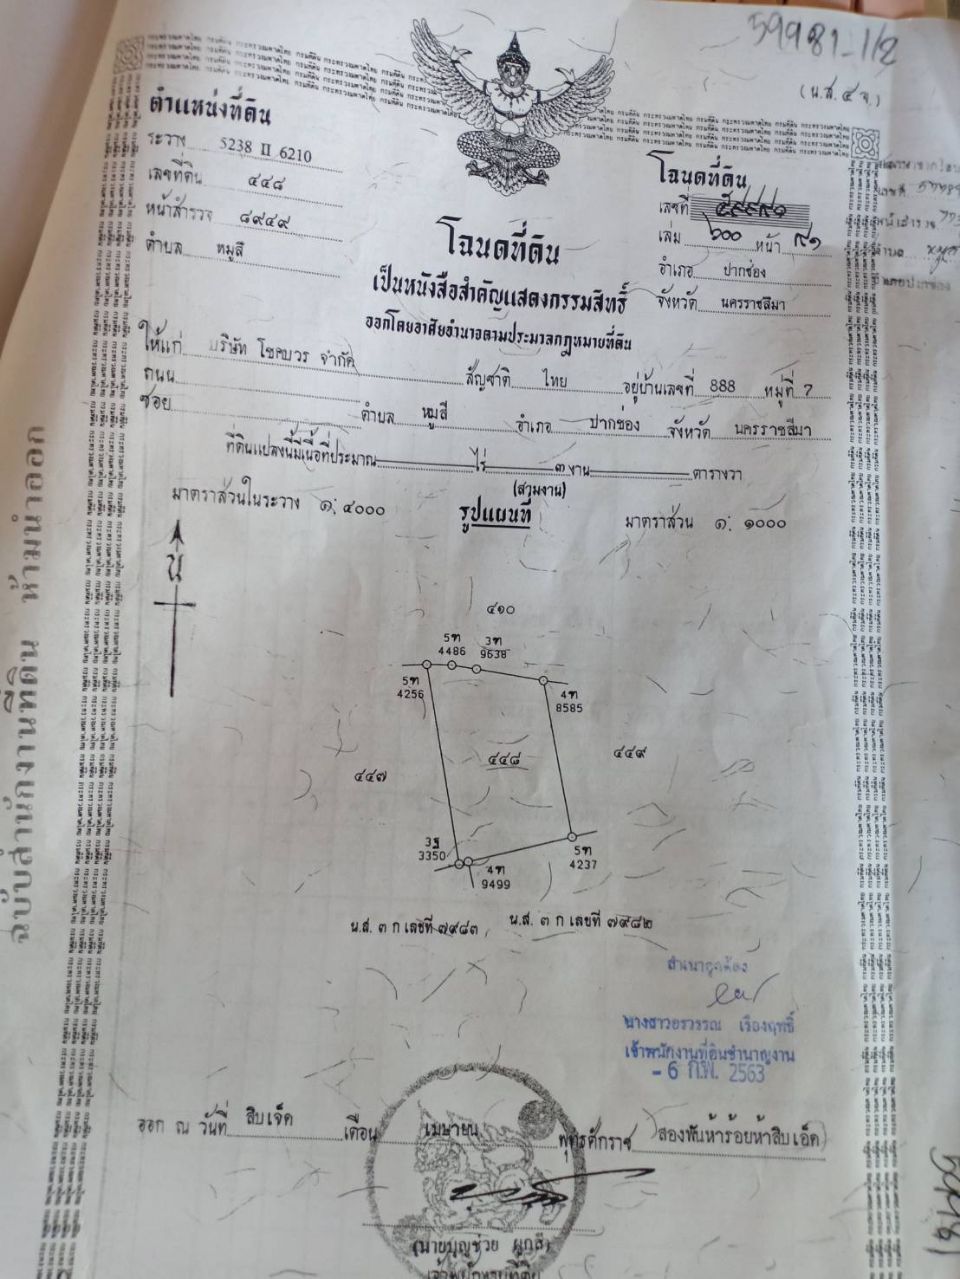 59981-1/2
(น.ส.๔ จ.)
ตำแหน่งที่ดิน
ระวาง 5238 II 6210
เลขที่ดิน ๔๔๘
หน้าสำรวจ ๘๙๔๙
ตำบล หมูสี
โฉนดที่ดิน
เลขที่
เล่ม ๖๐๐ หน้า ๙๑
อำเภอ ปากช่อง
จังหวัด นครราชสีมา
โฉนดที่ดิน
เป็นหนังสือสำคัญแสดงกรรมสิทธิ์
ออกโดยอาศัยอำนาจตามประมวลกฎหมายที่ดิน
ให้แก่ บริษัท โชคบวร จำกัด สัญชาติ ไทย อยู่บ้านเลขที่ 888 หมู่ที่ 7
ถนน
ซอย ตำบล หมูสี อำเภอ ปากช่อง จังหวัด นครราชสีมา
ที่ดินแปลงนี้มีเนื้อที่ประมาณ ไร่ ๓ งาน ตารางวา
(สามงาน)
มาตราส่วนในระวาง ๑: ๔๐๐๐ รูปแผนที่ มาตราส่วน ๑: ๑๐๐๐
น
๔๑๐
5ท 4486
3ท 9638
5ท 4256
4ท 8585
๔๔๗
๔๔๘
๔๔๙
3ฐ 3350
4ท 9499
5ท 4237
น.ส. ๓ ก เลขที่ ๗๙๘๓, น.ส. ๓ ก เลขที่ ๗๙๘๒
สำเนาถูกต้อง
นางสาวอรวรรณ เรืองฤทธิ์
เจ้าพนักงานที่ดินชำนาญงาน
- 6 ก.พ. 2563
ออก ณ วันที่ สิบเจ็ด เดือน เมษายน พุทธศักราช (สองพันห้าร้อยห้าสิบเอ็ด)
(นายบุญช่วย
เจ้าพนักงานที่ดิน
ฉบับสำนักงานที่ดิน ห้ามนำออก